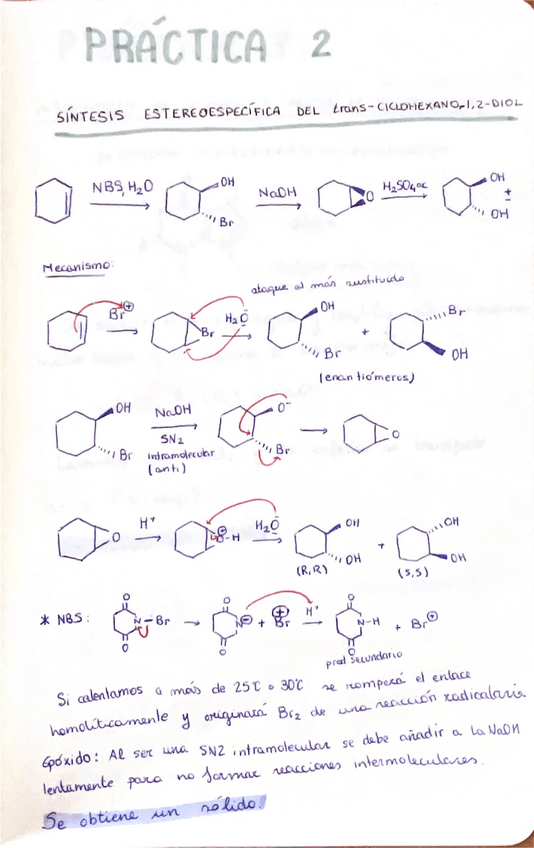 PRÁCTICA 2
SÍNTESIS ESTEREOESPECÍFICA DEL trans-CICLOHEXANO-1,2-DIOL
NBS, H₂O OH Br NaOH O H₂SO₄ ac OH OH ±
Mecanismo:
ataque al más sustituido
Br⊕ Br H₂O OH Br + Br OH
(enantiómeros)
OH Br NaOH O⁻ Br O
SN2
intramolecular
(anti)
O H⁺ O-H ⊕ H₂O OH OH + OH OH
(R,R) (S,S)
* NBS: O N-Br O O N⊖ O + Br⊕ H⁺ O N-H O + Br⊕
prod secundario
Si calentamos a más de 25℃ o 30℃ se romperá el enlace
homolíticamente y originará Br₂ de una reacción radicalaria
Epóxido: Al ser una SN2 intramolecular se debe añadir a la NaOH
lentamente para no formar reacciones intermoleculares.
Se obtiene un sólido!